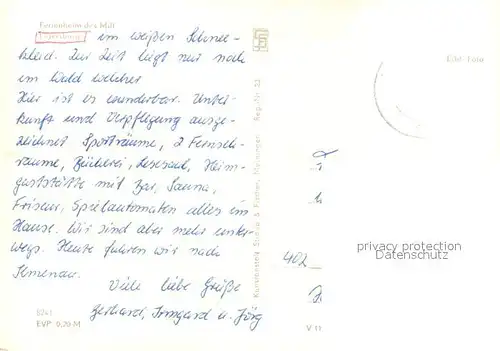 Ferienheim des MdI
im weißen Schnee-
kleid. Zur Zeit liegt nur noch
im Wald welcher
Hier ist es wunderbar. Unter-
kunft und Verpflegung ausge-
zeichnet Sporträume, 2 Fernseh-
räume, Bücherei, Lesesaal, Heim-
gaststätte mit Bar, Sauna,
Friseur, Spielautomaten alles im
Hause. Wir sind aber mehr unter-
wegs. Heute fahren wir nach
Ilmenau.
Viele liebe Grüße
Gerhard, Irmgard u. Jörg
EVP 0,20 M
Kunstanstalt Straub & Fischer, Meiningen
402
privacy protection
Datenschutz
V 11